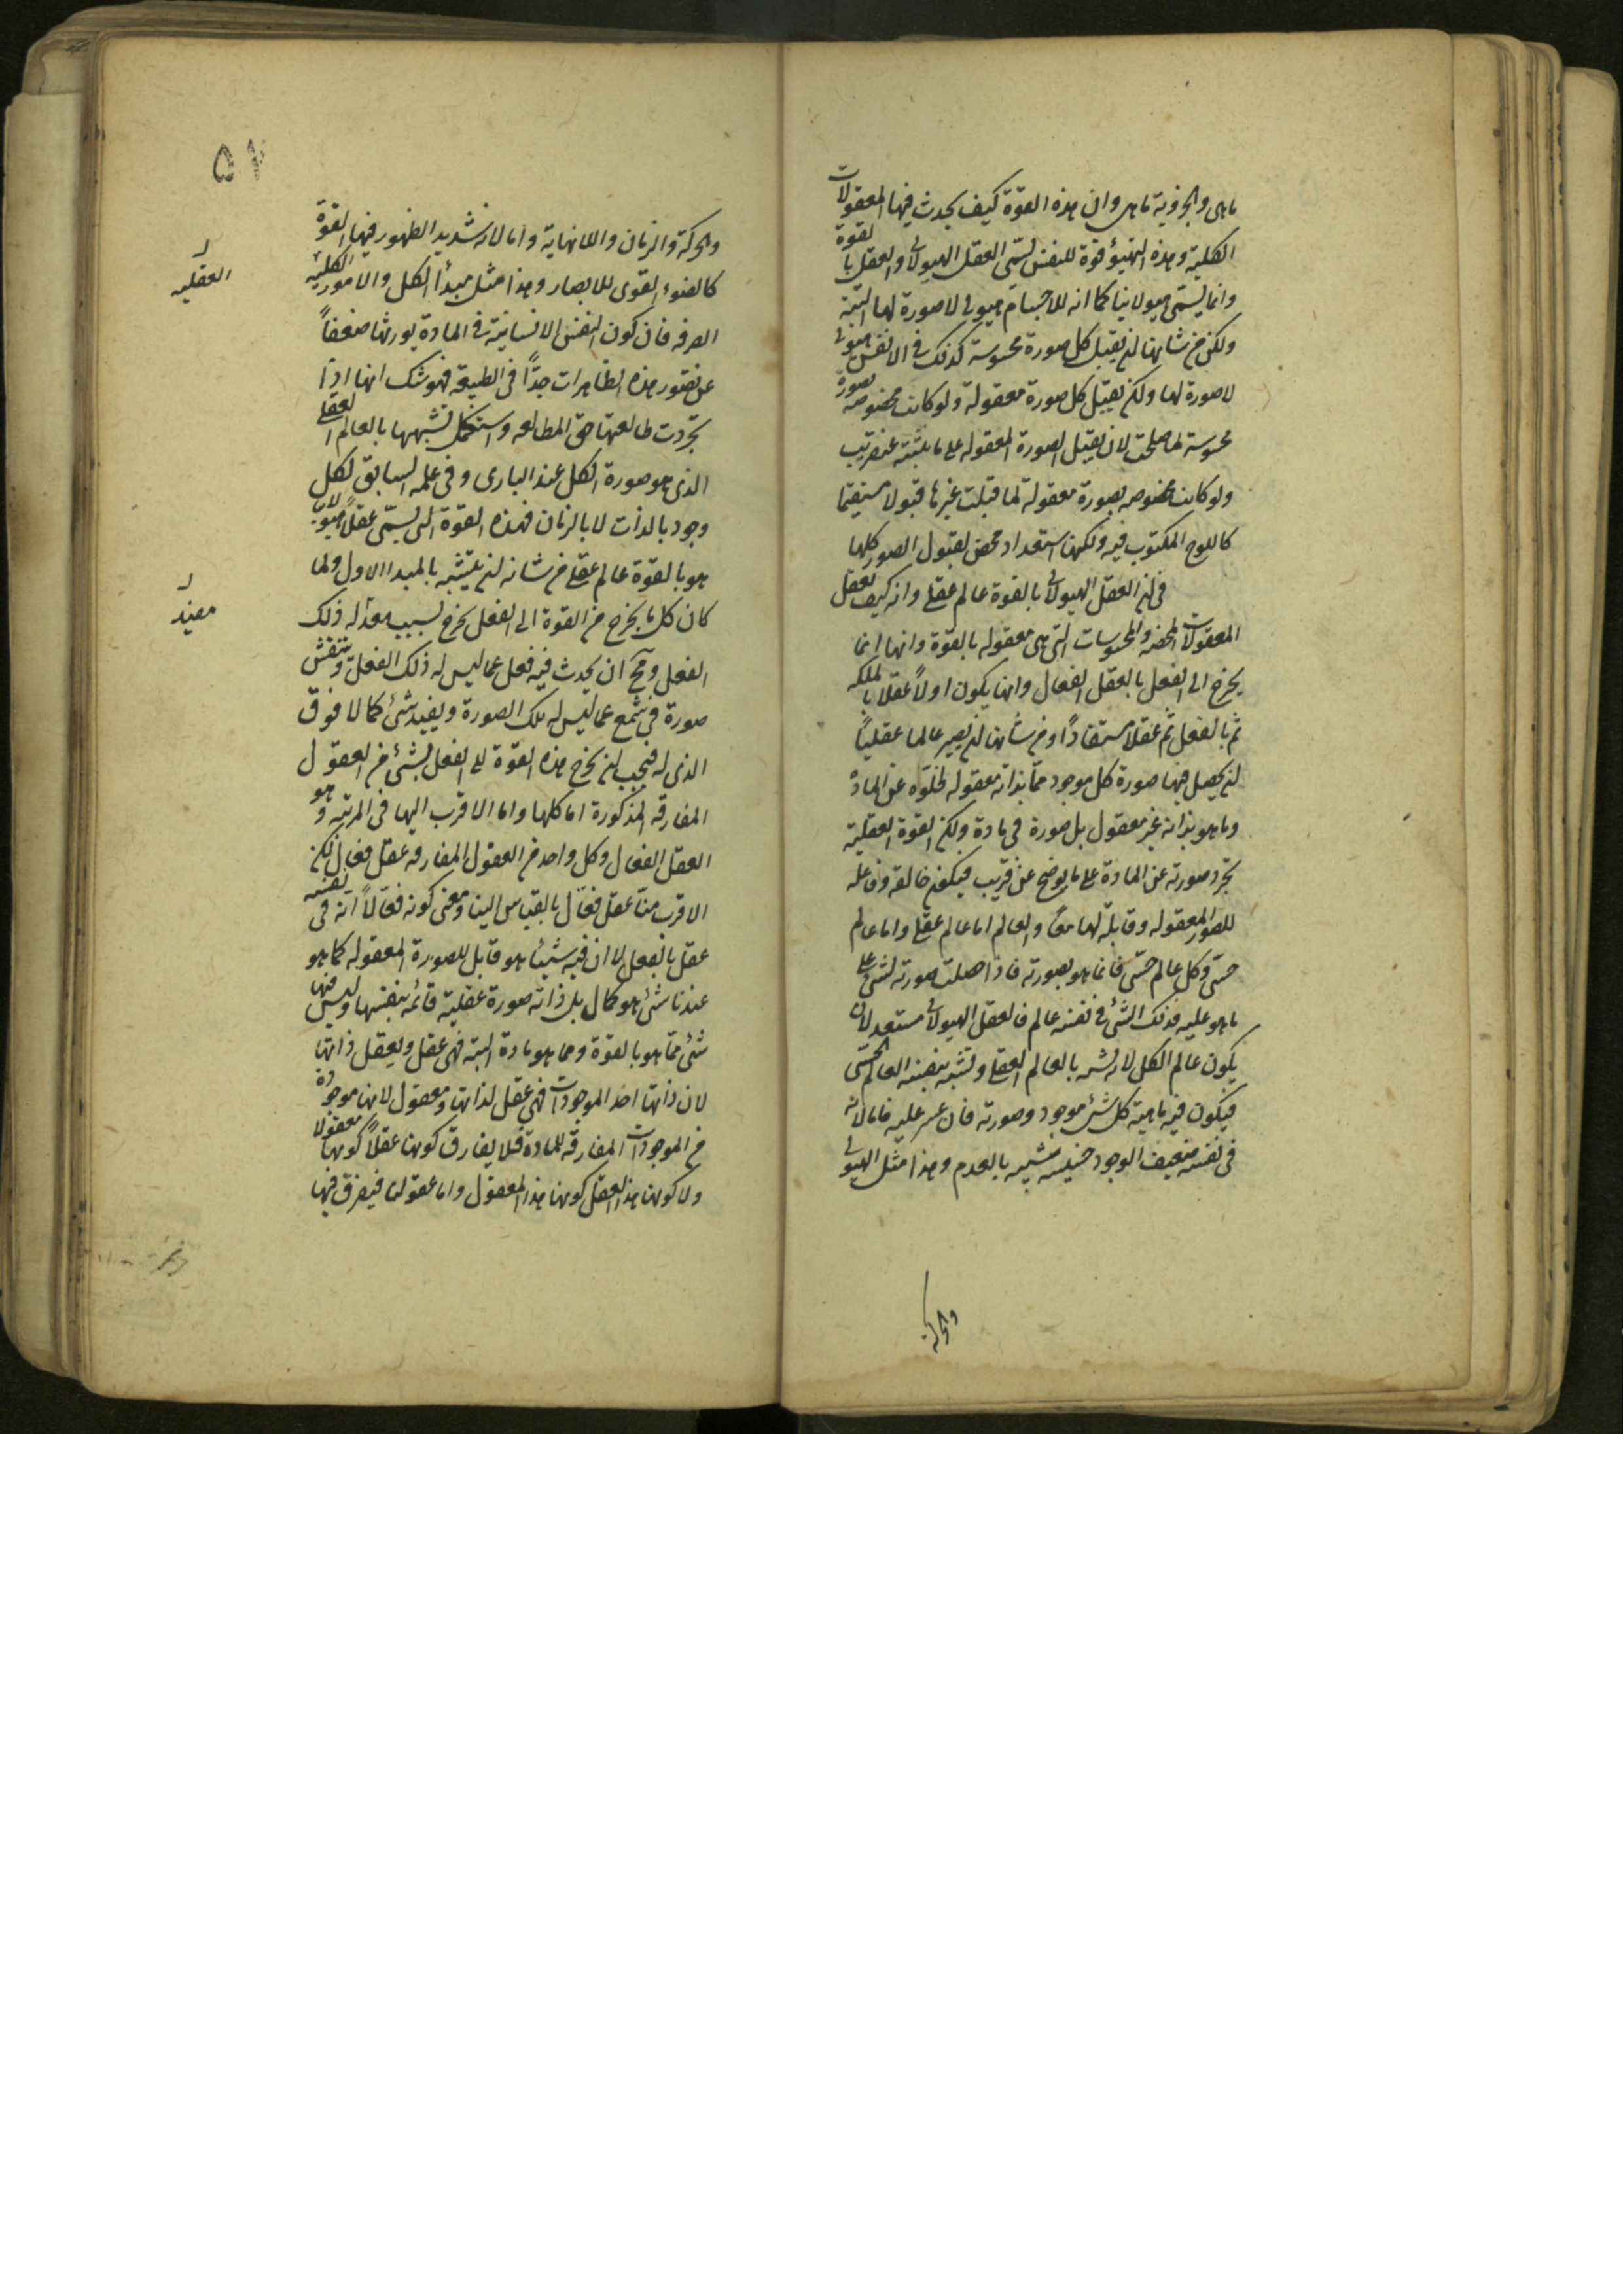 ماهى والجزوية ماهى وان هذه القوة كيف يحدث فيها المعقولات
الكلية وهذه التهيؤ قوة للنفس تسمّى العقل الهيولانى والعقل بالقوة
وانما يسمّى هيولانيا كما انه للاجسام هيولى لا صورة لها البتة
ولكن من شانها ان تقبل كل صورة محسوسة كذلك فى الانفس هيولى
لا صورة لها ولكن تقبل كل صورة معقولة ولو كانت مخصوصه بصورة
محسوسة لما صلحت لان تقبل الصورة المعقوله على ما نثبته عن قريب
ولو كانت مخصوصه بصورة معقولة لما قبلت غيرها قبولا مستقيما
كاللوح المكتوب فيه ولكنها استعداد محض لقبول الصور كلها
فى ان العقل الهيولانى بالقوة عالم عقلى وانه كيف تعقل
المعقولات المحضه والمحسوسات التى هى معقوله بالقوة وانها انما
يخرج الى الفعل بالعقل الفعال وانها يكون اولاً عقلا بالملكه
ثم بالفعل ثم عقلاً مستفاداً ومن شأنها ان يصير عالما عقلياً
ان يحصل فيها صورة كل موجود مما بذاته معقوله لخلوّه عن المادة
وما هو بذاته غير معقول بل صورة فى مادة ولكن القوة العقلية
تجرّد صورته عن المادة على ما يوضح عن قريب فيكون خالقة وفاعله
للصور المعقوله وقابلة لها معاً والعالم اما عالم عقلى واما عالم
حسّى وكل عالم حسّى فانما هو بصورته فاذا حصلت صورته لشئ على
ما هو عليه فذلك الشئ فى نفسه عالم فالعقل الهيولانى مستعد لان
يكون عالم الكل لانه يشبه بالعالم العقلى وتشبه بنفسه العالم الحسّى
فيكون فيه ماهية كل شئ موجود وصورته فان عسر عليه فاما لانه
فى نفسه ضعيف الوجود خسيسه شبيه بالعدم وهذا مثل الهيولى
والحركة
٥٧
والحركة والزمان واللانهاية واما لانه شديد الظهور فيبهر القوة
كالضوء القوى للابصار وهذا مثل مبدأ الكل والامور الكلية
العقليه
الصرفه فان كون النفس الانسانية فى المادة يورثها ضعفاً
عن تصور هذه الظاهرات جدّاً فى الطبيعة فيوشك انها اذا
تجرّدت طالعتها حق المطالعه واستكمل تشبهها بالعالم العقلى
الذى هو صورة الكل عند البارى وفى علمه السابق لكل
وجود بالذات لا بالزمان فهذه القوة التى تسمّى عقلاً هيولانيا
هو بالقوة عالم عقلى من شانه ان يتشبه بالمبدا الاول ولما
كان كل ما يخرج من القوة الى الفعل يخرج بسبب مفيد له ذلك
مفيد
الفعل ومح ان يحدث فيه فعل عما ليس له ذلك الفعل وتنقش
صورة فى شمع عما ليس له تلك الصورة ويفيد شئ كمالا فوق
الذى له فيجب ان تخرج هذه القوة الى الفعل بشئ من العقول
المفارقه المذكورة اما كلها واما الاقرب اليها فى المرتبه وهو
العقل الفعال وكل واحد من العقول المفارقه عقل فعال لكن
الاقرب منا عقل فعّال بالقياس الينا ومعنى كونه فعّالاً انه فى نفسه
عقل بالفعل لا ان فيه شيئا هو قابل للصورة المعقوله كما هو
عندنا شئ هو كمال بل ذاته صورة عقلية قائمه بنفسها وليس فيها
شئ ممّا هو بالقوة ومما هو مادة البته فهى عقل ويعقل ذاتها
لان ذاتها احد الموجودات فهى عقل لذاتها ومعقول لانها موجودة
من الموجودات المفارقه للمادة فلا يفارق كونها عقلاً كونها معقولا
ولا كونها هذا العقل كونها هذا المعقول واما عقولنا فيفرق فيها